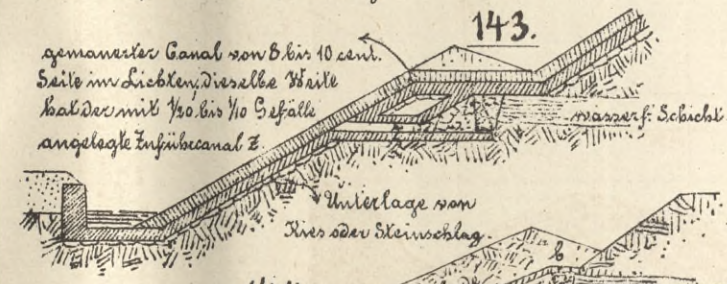 143.
gemauerter Canal von 8 bis 10 cent.
Seite im Lichten, dieselbe Weite
hat der mit 1/20 bis 1/10 Gefälle
angelegte Zuführcanal Z.
wasserf: Schicht
Unterlage von
Kies oder Steinschlag.
b